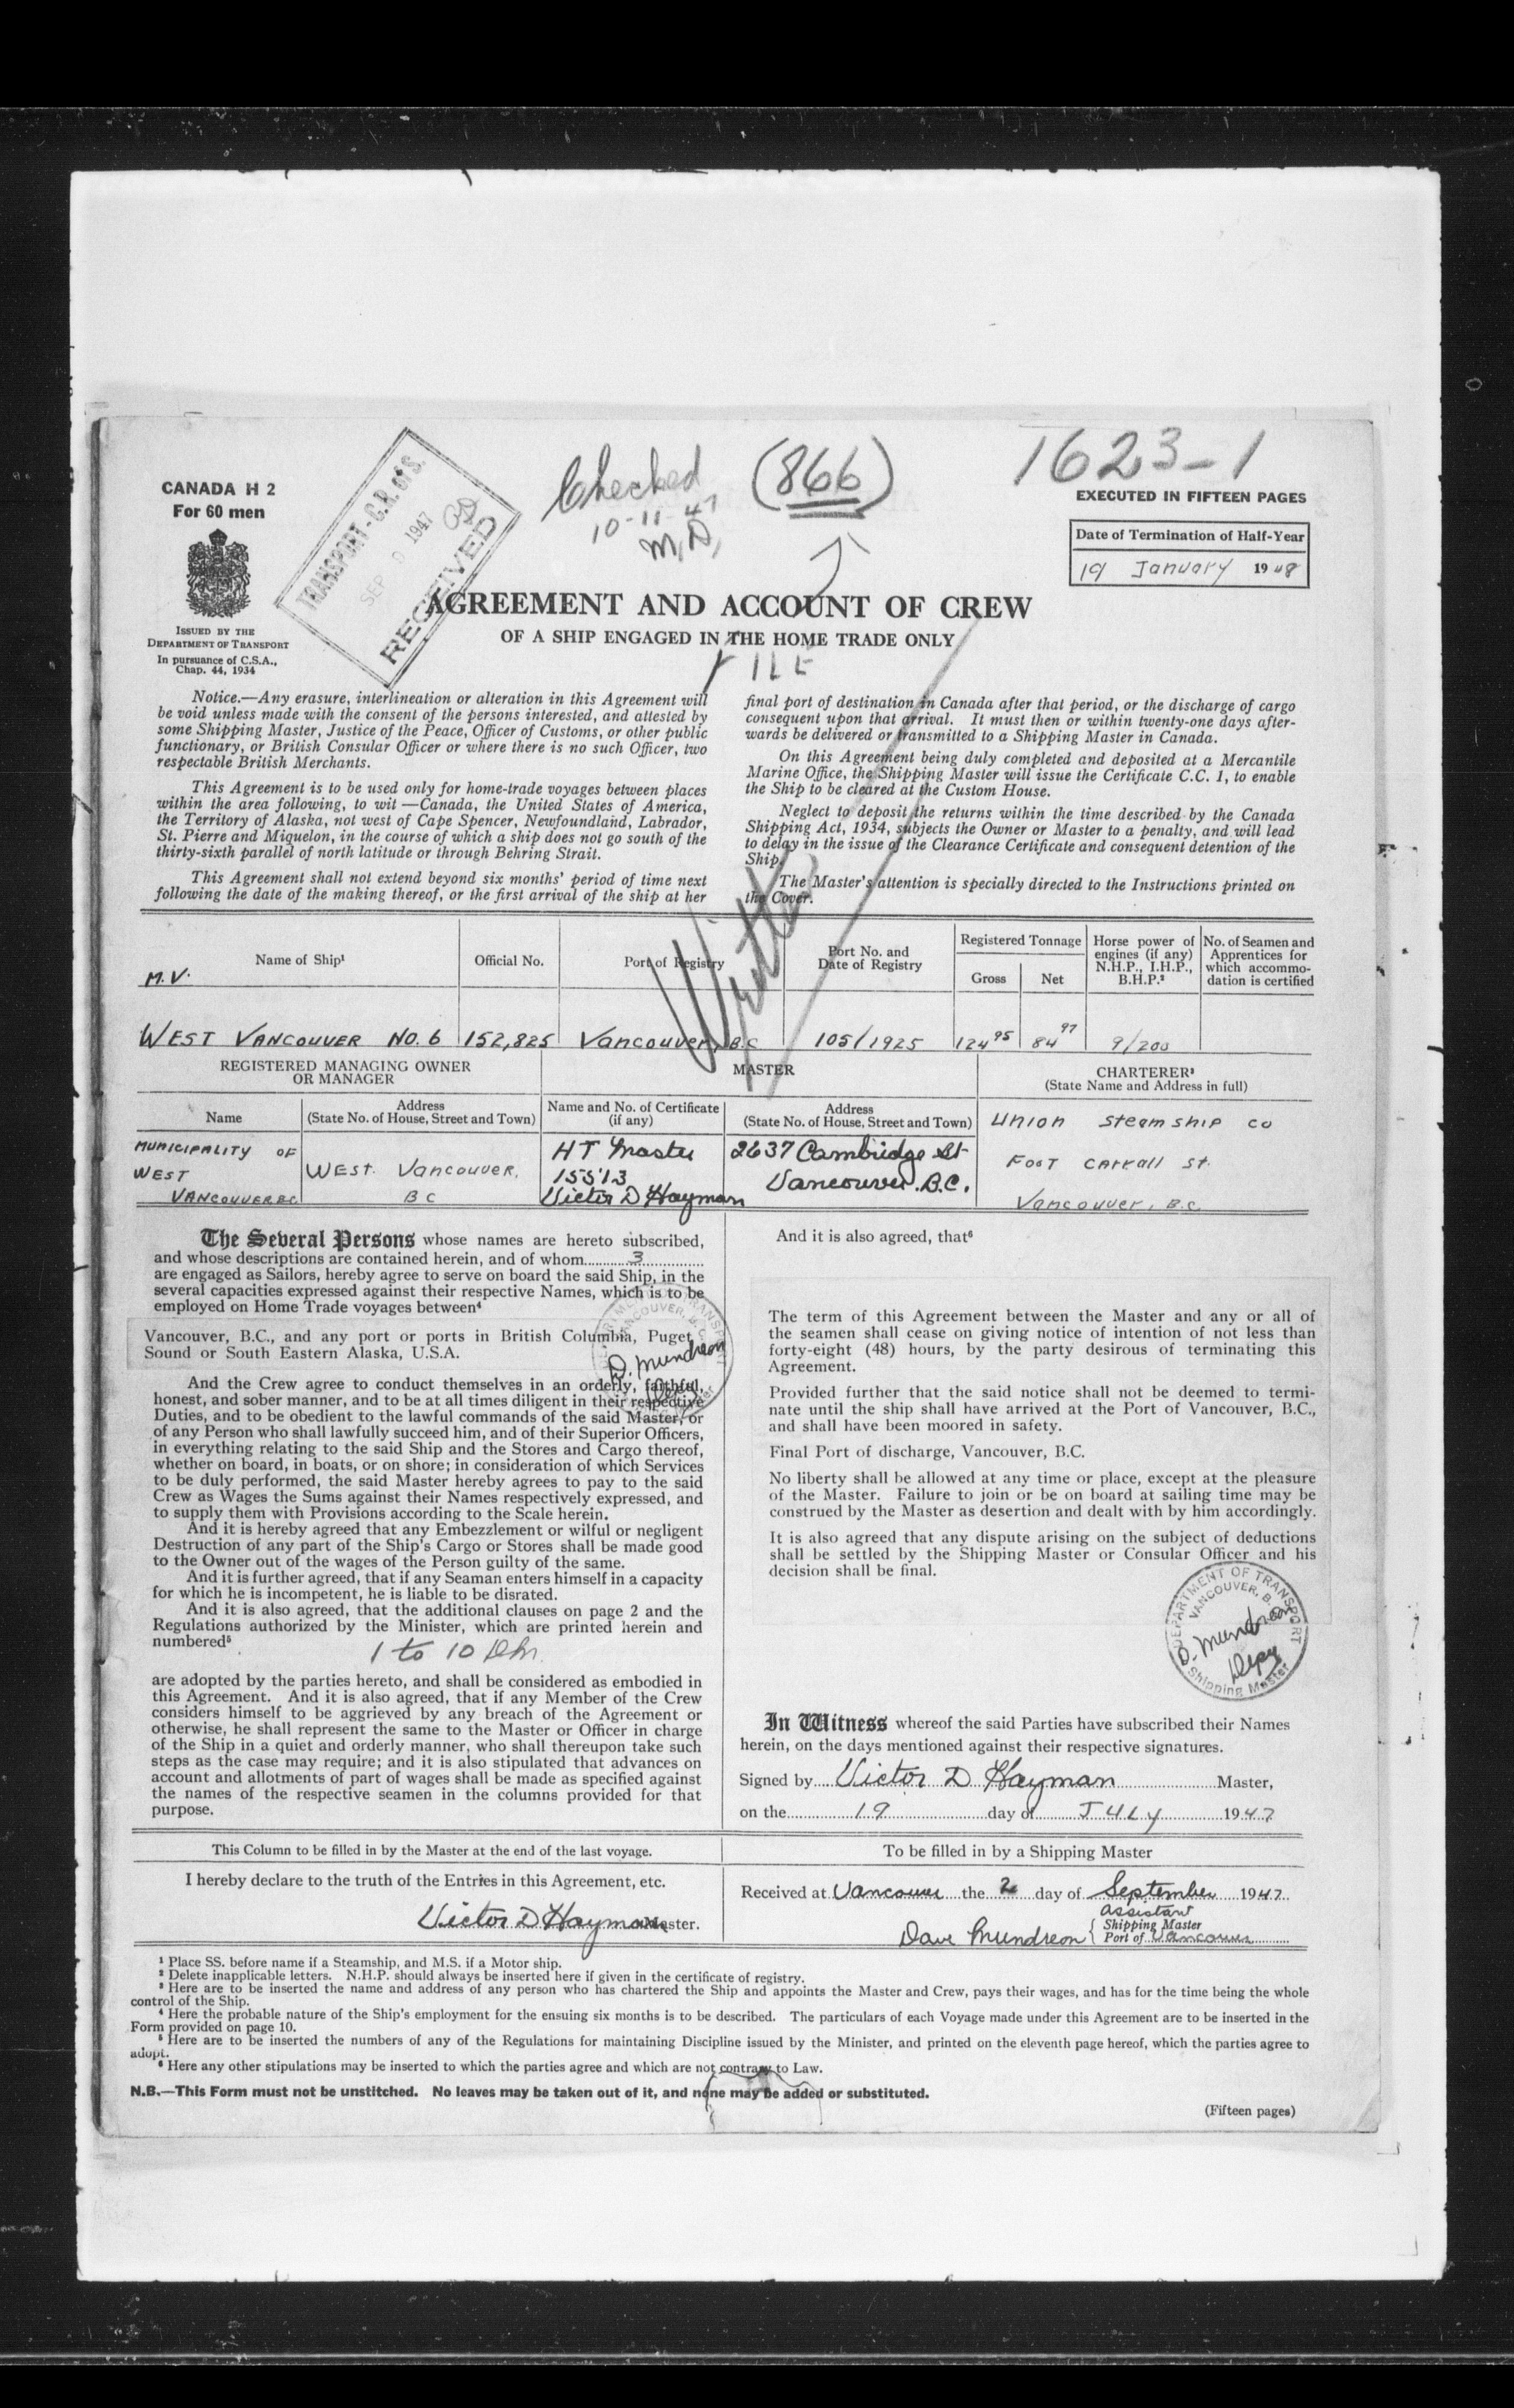 1623-1
Checked
(866)
10-11-47
M.D.
CANADA H 2
For 60 men
TRANSPORT - C.R. of S.
SEP 1947
RECEIVED
EXECUTED IN FIFTEEN PAGES
Date of Termination of Half-Year
19 January 1948
ISSUED BY THE
DEPARTMENT OF TRANSPORT
In pursuance of C.S.A.,
Chap. 44, 1934
AGREEMENT AND ACCOUNT OF CREW
OF A SHIP ENGAGED IN THE HOME TRADE ONLY
FILE
Notice.—Any erasure, interlineation or alteration in this Agreement will
be void unless made with the consent of the persons interested, and attested by
some Shipping Master, Justice of the Peace, Officer of Customs, or other public
functionary, or British Consular Officer or where there is no such Officer, two
respectable British Merchants.
This Agreement is to be used only for home-trade voyages between places
within the area following, to wit—Canada, the United States of America,
the Territory of Alaska, not west of Cape Spencer, Newfoundland, Labrador,
St. Pierre and Miquelon, in the course of which a ship does not go south of the
thirty-sixth parallel of north latitude or through Behring Strait.
This Agreement shall not extend beyond six months' period of time next
following the date of the making thereof, or the first arrival of the ship at her
final port of destination in Canada after that period, or the discharge of cargo
consequent upon that arrival. It must then or within twenty-one days after-
wards be delivered or transmitted to a Shipping Master in Canada.
On this Agreement being duly completed and deposited at a Mercantile
Marine Office, the Shipping Master will issue the Certificate C.C. 1, to enable
the Ship to be cleared at the Custom House.
Neglect to deposit the returns within the time described by the Canada
Shipping Act, 1934, subjects the Owner or Master to a penalty, and will lead
to delay in the issue of the Clearance Certificate and consequent detention of the
Ship.
The Master's attention is specially directed to the Instructions printed on
the Cover.
Name of Ship¹
Official No.
Port of Registry
Port No. and
Date of Registry
Registered Tonnage
Gross
Net
Horse power of
engines (if any)
N.H.P., I.H.P.,
B.H.P.²
No. of Seamen and
Apprentices for
which accommo-
dation is certified
M.V.
WEST VANCOUVER NO. 6 152,825 Vancouver, B.C 105/1925 124 95 84 97 9/200
REGISTERED MANAGING OWNER
OR MANAGER
MASTER
CHARTERER³
(State Name and Address in full)
Name
Address
(State No. of House, Street and Town)
Name and No. of Certificate
(if any)
Address
(State No. of House, Street and Town)
MUNICIPALITY OF
WEST
VANCOUVER B.C.
WEST Vancouver.
B C
HT Master
15513
Victor D Hayman
2637 Cambridge St
Vancouver. B.C.
Union Steamship Co
Foot Carrall St.
Vancouver, B.C.
The Several Persons whose names are hereto subscribed,
and whose descriptions are contained herein, and of whom 3
are engaged as Sailors, hereby agree to serve on board the said Ship, in the
several capacities expressed against their respective Names, which is to be
employed on Home Trade voyages between⁴
Vancouver, B.C., and any port or ports in British Columbia, Puget
Sound or South Eastern Alaska, U.S.A.
D. Mundreon
Depy
And the Crew agree to conduct themselves in an orderly, faithful,
honest, and sober manner, and to be at all times diligent in their respective
Duties, and to be obedient to the lawful commands of the said Master, or
of any Person who shall lawfully succeed him, and of their Superior Officers,
in everything relating to the said Ship and the Stores and Cargo thereof,
whether on board, in boats, or on shore; in consideration of which Services
to be duly performed, the said Master hereby agrees to pay to the said
Crew as Wages the Sums against their Names respectively expressed, and
to supply them with Provisions according to the Scale herein.
And it is hereby agreed that any Embezzlement or wilful or negligent
Destruction of any part of the Ship's Cargo or Stores shall be made good
to the Owner out of the wages of the Person guilty of the same.
And it is further agreed, that if any Seaman enters himself in a capacity
for which he is incompetent, he is liable to be disrated.
And it is also agreed, that the additional clauses on page 2 and the
Regulations authorized by the Minister, which are printed herein and
numbered⁵
1 to 10
are adopted by the parties hereto, and shall be considered as embodied in
this Agreement. And it is also agreed, that if any Member of the Crew
considers himself to be aggrieved by any breach of the Agreement or
otherwise, he shall represent the same to the Master or Officer in charge
of the Ship in a quiet and orderly manner, who shall thereupon take such
steps as the case may require; and it is also stipulated that advances on
account and allotments of part of wages shall be made as specified against
the names of the respective seamen in the columns provided for that
purpose.
And it is also agreed, that⁶
The term of this Agreement between the Master and any or all of
the seamen shall cease on giving notice of intention of not less than
forty-eight (48) hours, by the party desirous of terminating this
Agreement.
Provided further that the said notice shall not be deemed to termi-
nate until the ship shall have arrived at the Port of Vancouver, B.C.,
and shall have been moored in safety.
Final Port of discharge, Vancouver, B.C.
No liberty shall be allowed at any time or place, except at the pleasure
of the Master. Failure to join or be on board at sailing time may be
construed by the Master as desertion and dealt with by him accordingly.
It is also agreed that any dispute arising on the subject of deductions
shall be settled by the Shipping Master or Consular Officer and his
decision shall be final.
DEPARTMENT OF TRANSPORT
VANCOUVER, B.C.
D. Mundreon
Depy
Shipping Master
In Witness whereof the said Parties have subscribed their Names
herein, on the days mentioned against their respective signatures.
Signed by Victor D Hayman Master,
on the 19 day of JULY 1947
This Column to be filled in by the Master at the end of the last voyage.
I hereby declare to the truth of the Entries in this Agreement, etc.
Victor D Hayman Master.
To be filled in by a Shipping Master
Received at Vancouver the 2 day of September 1947
Assistant
Dave Mundreon { Shipping Master
Port of Vancouver
¹ Place SS. before name if a Steamship, and M.S. if a Motor ship.
² Delete inapplicable letters. N.H.P. should always be inserted here if given in the certificate of registry.
³ Here are to be inserted the name and address of any person who has chartered the Ship and appoints the Master and Crew, pays their wages, and has for the time being the whole
control of the Ship.
⁴ Here the probable nature of the Ship's employment for the ensuing six months is to be described. The particulars of each Voyage made under this Agreement are to be inserted in the
Form provided on page 10.
⁵ Here are to be inserted the numbers of any of the Regulations for maintaining Discipline issued by the Minister, and printed on the eleventh page hereof, which the parties agree to
adopt.
⁶ Here any other stipulations may be inserted to which the parties agree and which are not contrary to Law.
N.B.—This Form must not be unstitched. No leaves may be taken out of it, and none may be added or substituted.
(Fifteen pages)